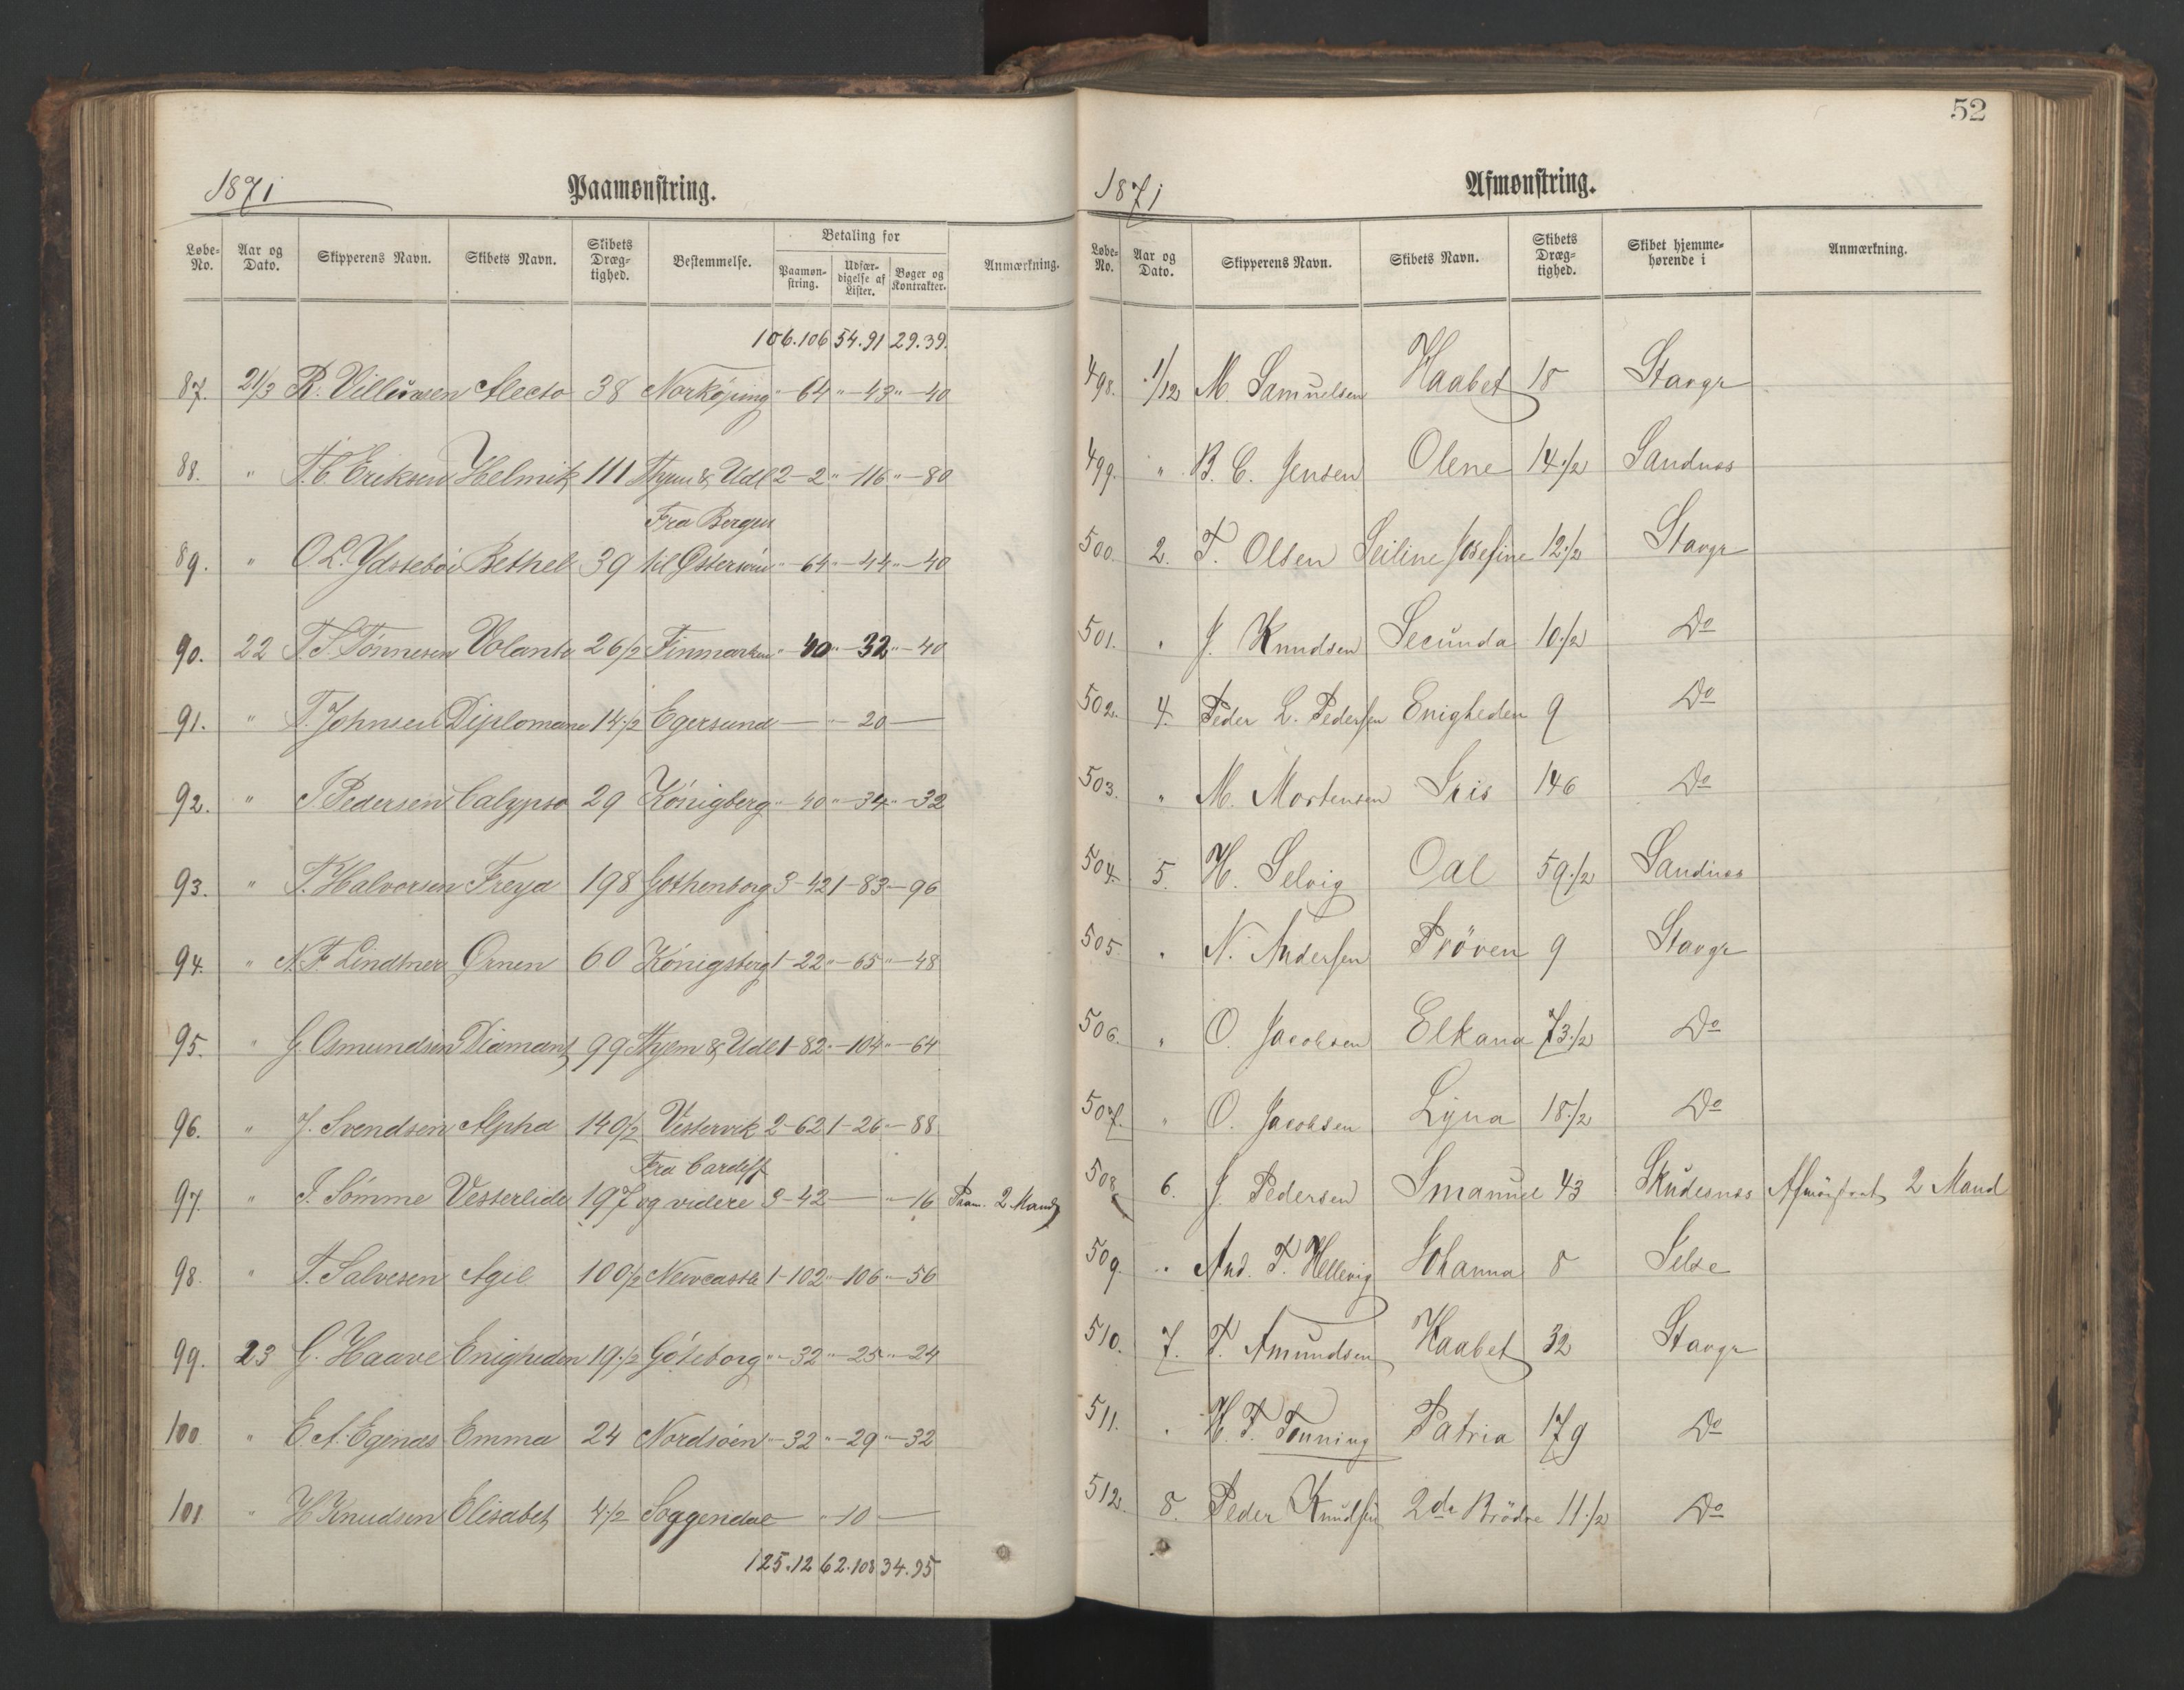 1871 Paamønstring.
Løbe-No. Aar og Dato. Skipperens Navn. Skibets Navn. Skibets Dræg-tighed. Bestemmelse. Betaling for Paamøn-string. Udfær-digelse af Lister. Bøger og Kontrakter. Anmærkning.
106.106 54.91 29.39.
87. 21/3 R. Alecto 38 Norköping " - 64 " - 43 " - 40
88. " T. C. Eriksen Helmik 111 & Udl 2 - 2 " - 116 " - 80
Fra Bergen
89. " O. L. Ydsteböe Bethel 39 til Østersöen " - 64 " - 44 " - 40
90. 22 T. S. Tönnesen Volante 26 1/2 Finmarken " - 40 " - 32 " - 40
91. " T. Johnsen Diplomano 14 1/2 Egersund — " - 20 —
92. " J Pedersen Calypso 29 Königberg " - 40 " - 34 " - 32
93. " T. Halvorsen Freya 198 Gothenborg 3 - 42 1 - 83 " - 96
94. " N. F. Lindtner Ørnen 60 Königsberg 1 - 22 " - 65 " - 48
95. " G. Osmundsen Diamant 99 Hjem & Udl 1 - 82 " - 104 " - 64
96. " J. Svendsen Alpha 140 1/2 Vestervik 2 - 62 1 - 26 " - 88
Fra Cardiff
97. " J. Sömme Vesterlide 197 og videre 3 - 42 — " - 16 Paam. 2 Mand
98. " T. Salvesen Agil 100 1/2 Newcastle 1 - 102 " - 106 " - 56
99. 23 G. Haave Enigheden 19 1/2 Göteborg " - 32 " - 25 " - 24
100 " E. A. Egenæs Emma 24 Nordsöen " - 32 " - 29 " - 32
101 " H Knudsen Elisabet 4 1/2 Soggendal — " - 10 —
125.12 62.108 34.95
52
1871 Afmønstring.
Løbe-No. Aar og Dato. Skipperens Navn. Skibets Navn. Skibets Dræg-tighed. Skibet hjemme-hørende i Anmærkning.
498. 1/12 M. Samuelsen Haabet 18 Stavgr
499. " B. C. Jensen Olene 14 1/2 Sandnæs
500. 2. T. Olsen Seiline Josefine 12 1/2 Stavgr
501. " J. Knudsen Secunda 10 1/2 Do
502. 4. Peder L. Pedersen Enigheden 9 Do
503. " M. Mortensen Iris 146 Do
504. 5. H. Selvig Oal 59 1/2 Sandnæs
505. " N. Andersen Pröven 9 Stavgr
506. " O. Jacobsen Elkana 73 1/2 Do
507. " O. Jacobsen Lyna 18 1/2 Do
508 6. J. Pedersen Imanuel 43 Skudesnæs Afmönstret 2 Mand
509. " And. T. Hellevig Johanna 8 Jelse
510. 7. T. Amundsen Haabet 32 Stavgr
511. " H. T. Tonning Patria 179 Do
512. 8. Peder Knudsen 2de Brödre 11 1/2 Do